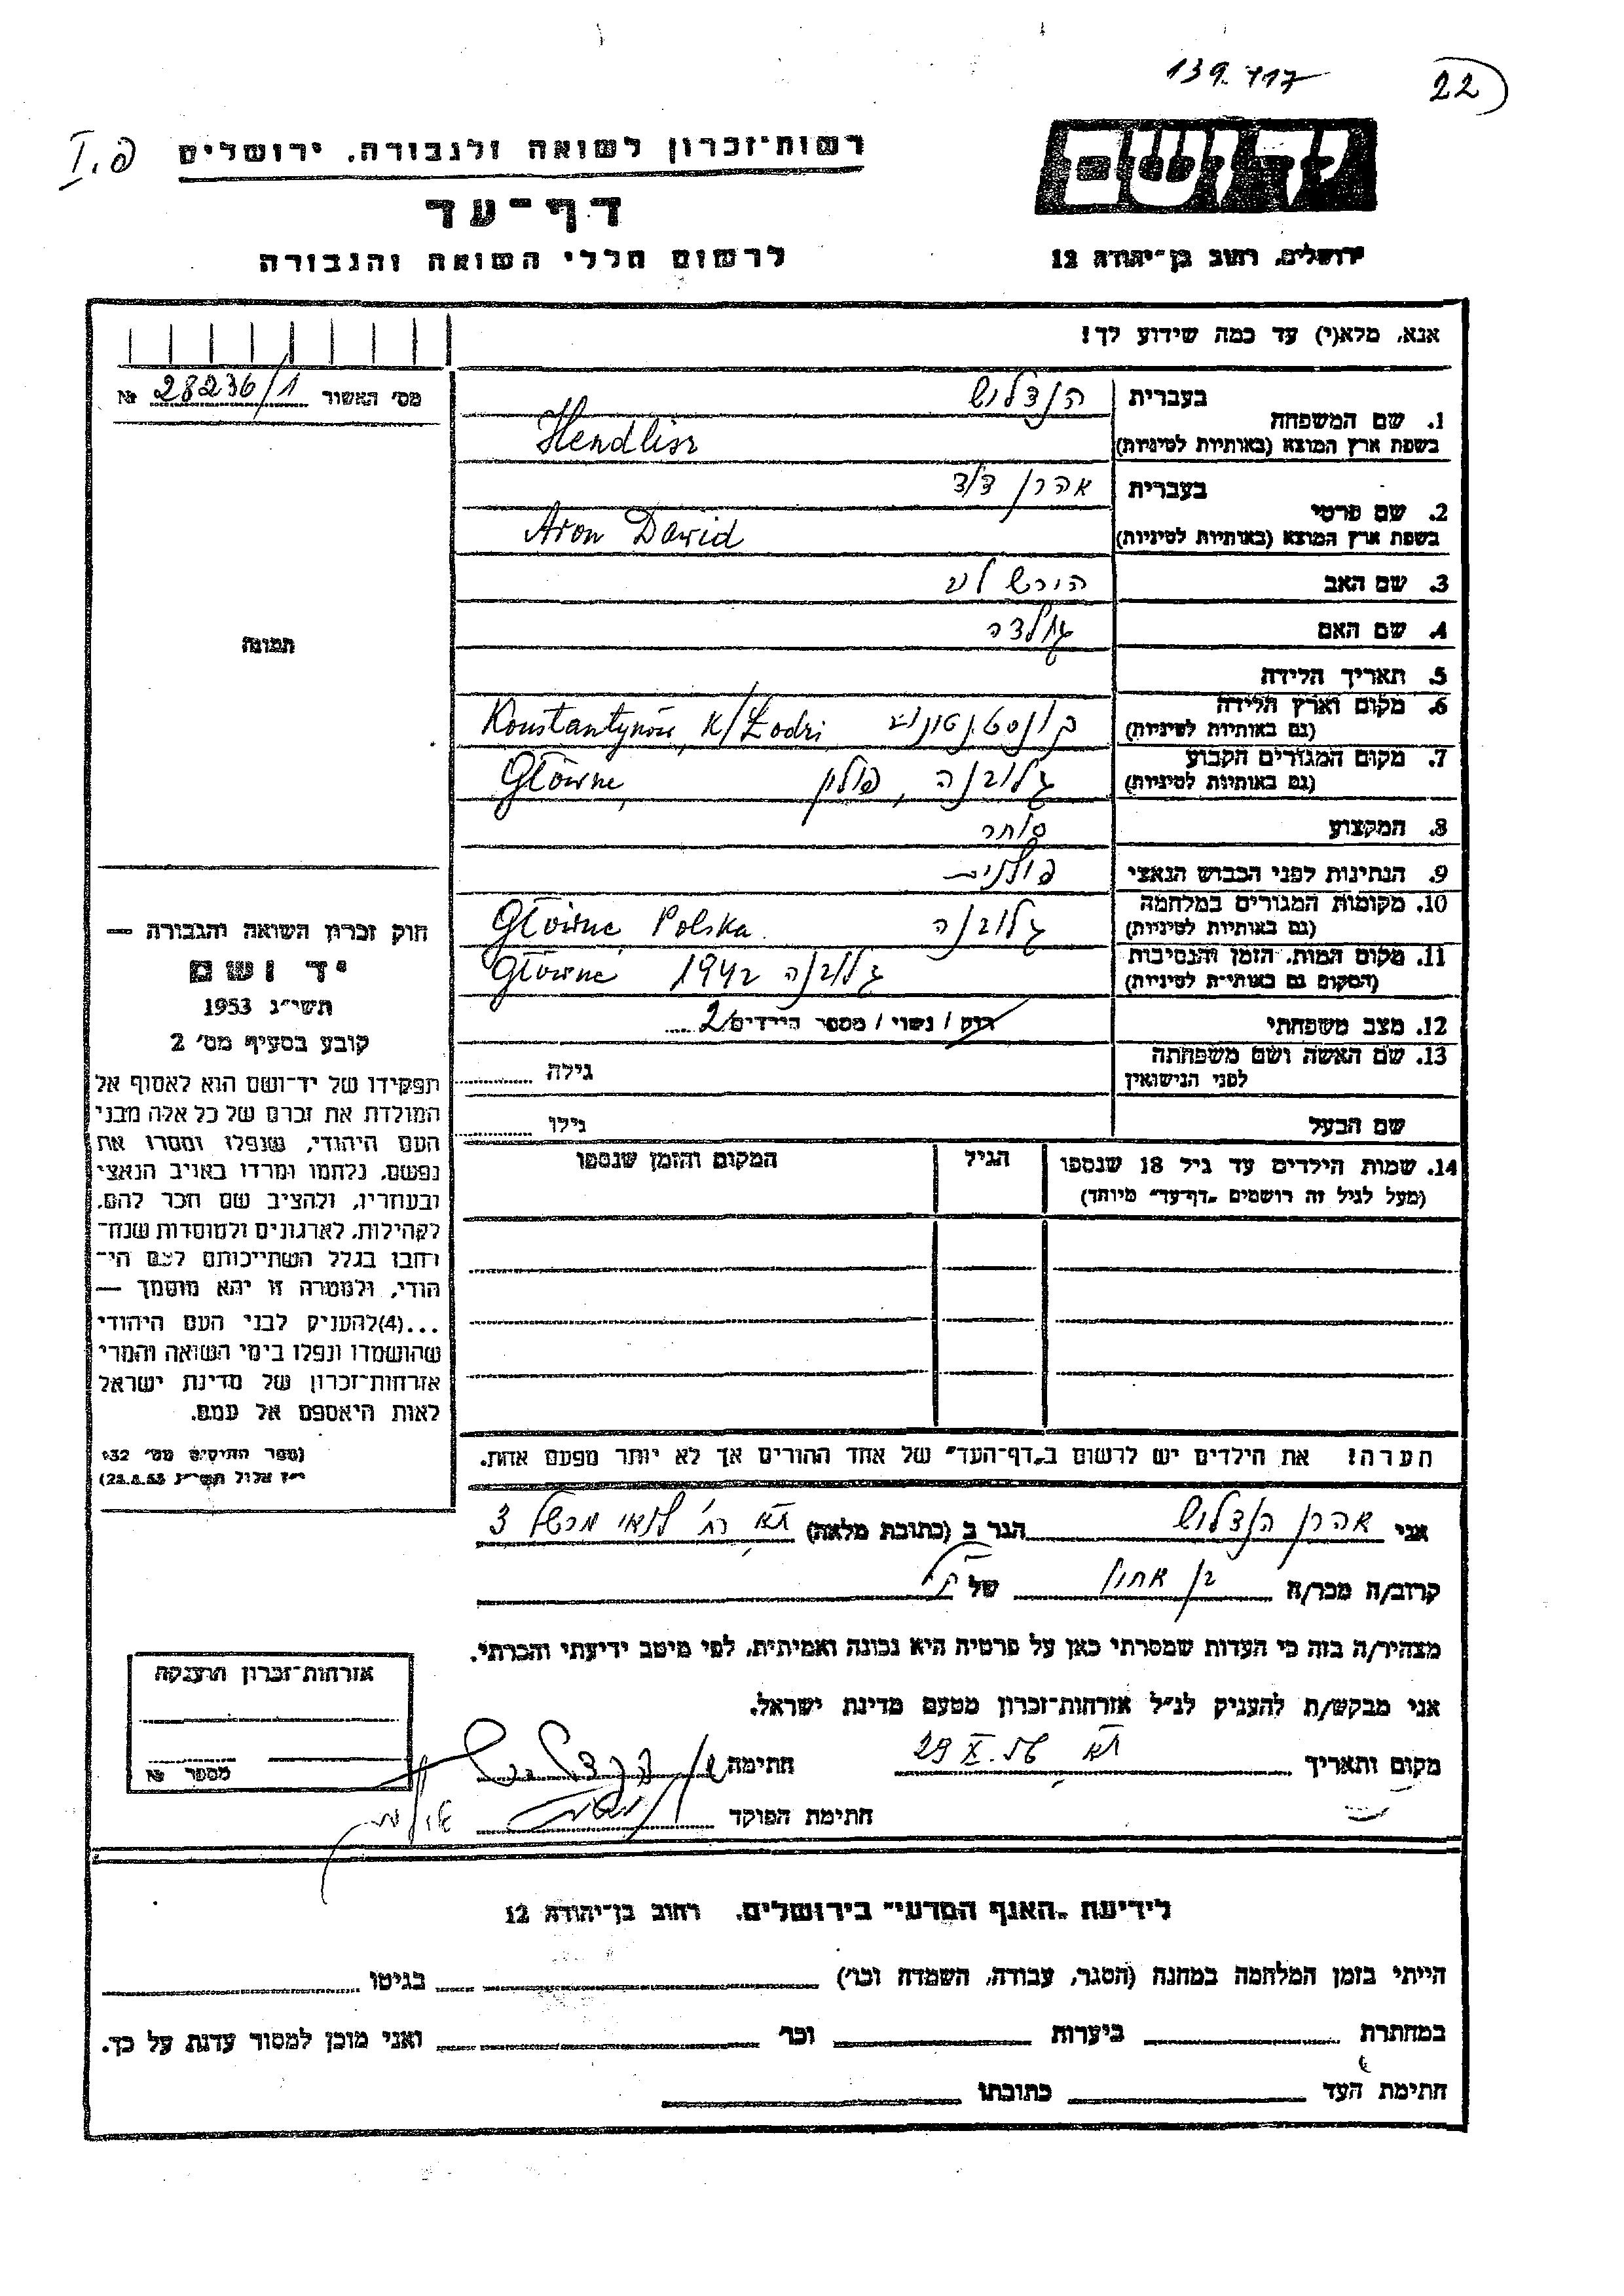 139.717
22
רשות־זכרון לשואה ולגבורה, ירושלים
פ.I
דף־עד
לרשום חללי השואה והגבורה
יד ושם
ירושלים, רחוב בן־יהודה 12
אנא, מלא(י) עד כמה שידוע לך!
מס׳ האשור 28236/1 №
תמונה
חוק זכרון השואה והגבורה —
יד ושם
תשי״ג 1953
קובע בסעיף מס׳ 2
תפקידו של יד־ושם הוא לאסוף אל
המולדת את זכרם של כל אלה מבני
העם היהודי, שנפלו ומסרו את
נפשם, נלחמו ומרדו באויב הנאצי
ובעוזריו, ולהציב שם וזכר להם,
לקהילות, לארגונים ולמוסדות שנח־
רחבו בגלל השתייכותם לעם הי־
הודי, ולמטרה זו יהא מוסמך —
...(4)להעניק לבני העם היהודי
שהושמדו ונפלו בימי השואה והמרי
אזרחות־זכרון של מדינת ישראל
לאות היאספם אל עמם.
(ספר החוקים מס׳ 132
י״ז אלול תשי״ג 28.8.53)
1. שם המשפחה
בעברית הנדלוש
בשפת ארץ המוצא (באותיות לטיניות) Hendlisz
2. שם פרטי
בעברית אהרן דוד
בשפת ארץ המוצא (באותיות לטיניות) Aron Dawid
3. שם האב הירש לוב
4. שם האם גולדה
5. תאריך הלידה
6. מקום וארץ הלידה
(גם באותיות לטיניות) קונסטנטונוב Konstantynów, K/Łodzi
7. מקום המגורים הקבוע
(גם באותיות לטיניות) גלובנה, פולין Główne,
8. המקצוע סוחר
9. הנתינות לפני הכבוש הנאצי פולנית
10. מקומות המגורים במלחמה
(גם באותיות לטיניות) גלובנה Główne Polska.
11. מקום המות, הזמן והנסיבות
(המקום גם באותיות לטיניות) גלובנה 1942 Główne
12. מצב משפחתי רוק / נשוי / מספר הילדים 2
13. שם האשה ושם משפחתה
לפני הנישואין גילה
שם הבעל גילו
14. שמות הילדים עד גיל 18 שנספו הגיל המקום והזמן שנספו
(מעל לגיל זה רושמים ״דף־עד״ מיוחד)
הערה! את הילדים יש לרשום ב״דף־העד״ של אחד ההורים אך לא יותר מפעם אחת.
אני אהרן הנדלוש הגר ב (כתובת מלאה) ת״א רח׳ לואי מרשל 3
קרוב/ה מכר/ה בן אחון של הנ״ל
מצהיר/ה בזה כי העדות שמסרתי כאן על פרטיה היא נכונה ואמיתית, לפי מיטב ידיעתי והכרתי.
אני מבקש/ת להעניק לנ״ל אזרחות־זכרון מטעם מדינת ישראל.
מקום ותאריך ת״א 29 X. חתימה הנדלוש
חתימת הפוקד
אזרחות־זכרון הוענקה
מספר №
לידיעת ״האגף המדעי״ בירושלים, רחוב בן־יהודה 12
הייתי בזמן המלחמה במחנה (הסגר, עבודה, השמדה וכו׳) בגיטו
במחתרת ביערות וכו׳ ואני מוכן למסור עדות על כך.
חתימת העד כתובתו